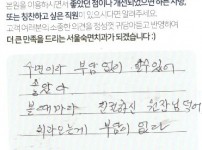 본원을 이용하시면서 좋았던 점이나 개선되었으면 하는 사항,
또는 칭찬하고 싶은 직원이 있으시다면 알려주세요.
고객 여러분의 소중한 의견을 정성껏 귀담아듣고 반영하여
더 큰 만족을 드리는 서울숙면치과가 되겠습니다 :)
수면이라 부담없이 할수있어
좋았다
볼때마다 친절하신 원장님덕에
치과오는게 부담이 없다